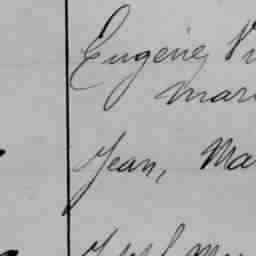 Eugène, Vi
mari
Jean, Ma